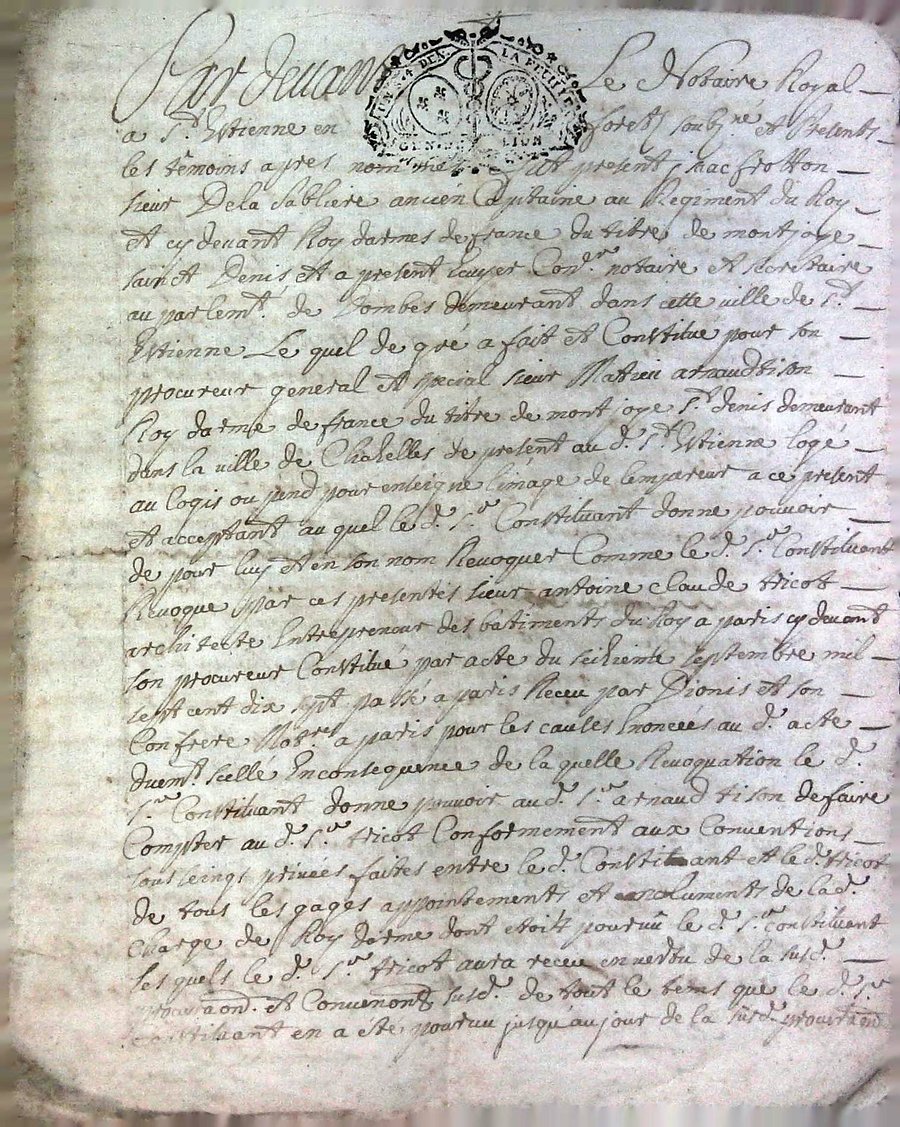 UN S 4 DEN. LA FEUILLE
GEN. LION
Par devant Le Notaire Royal
a St. Estienne en forets soubzné et Presents
les témoins apres nommes fut present isaac frotton
sieur Dela Sabliere ancien Capitaine au Regiment du Roy
Et cy devant Roy darmes de france du titre de mont joye
sainct Denis Et a present Ecuyer Coner. notaire et secretaire
au parlemt. de Dombes demeurant dans cette ville de St.
Estienne Le quel de gré a fait et Constitué pour son
procureur general et special sieur Mathieu arnaud tison
Roy darme de france du titre de mont joye St. denis demeurant
dans la ville de Chazelles de present au d. St. Estienne logé
au logis ou pend pour enseigne limage de lempereur a ce present
Et acceptant au quel le d. Sr. Constituant donne pouvoir
de pour luy et en son nom Revoquer Comme le d. Sr. Constituant
Revoque par ces presentes sieur antoine claude tricot
architecte Entrepreneur des batiments du Roy a paris cy devant
son procureur Constitué par acte du seizieme septembre mil
sept cent dix sept passé a paris Receu par Dionis et son
Confrere Notres a paris pour les causes Enoncées au d. acte
duemt. scellé En consequence de la quelle Revoquation le d.
Sr. Constituant donne pouvoir au d. Sr. arnaud tison de faire
Compter au d. Sr. tricot Conformement aux Conventions
sous seings privées faites entre le d. Constituant et le d. tricot
de tous les gages appointements et emoluments de la d.
Charge de Roy darme dont etoit pourvu le d. Sr. constituant
les quels le d. Sr. tricot aura receu en vertu de la susd.
procuraon. et Convenons susd. de tout le tems que le d. Sr.
constituant en a été pourvu jusqu'au jour de la susd. procuraon